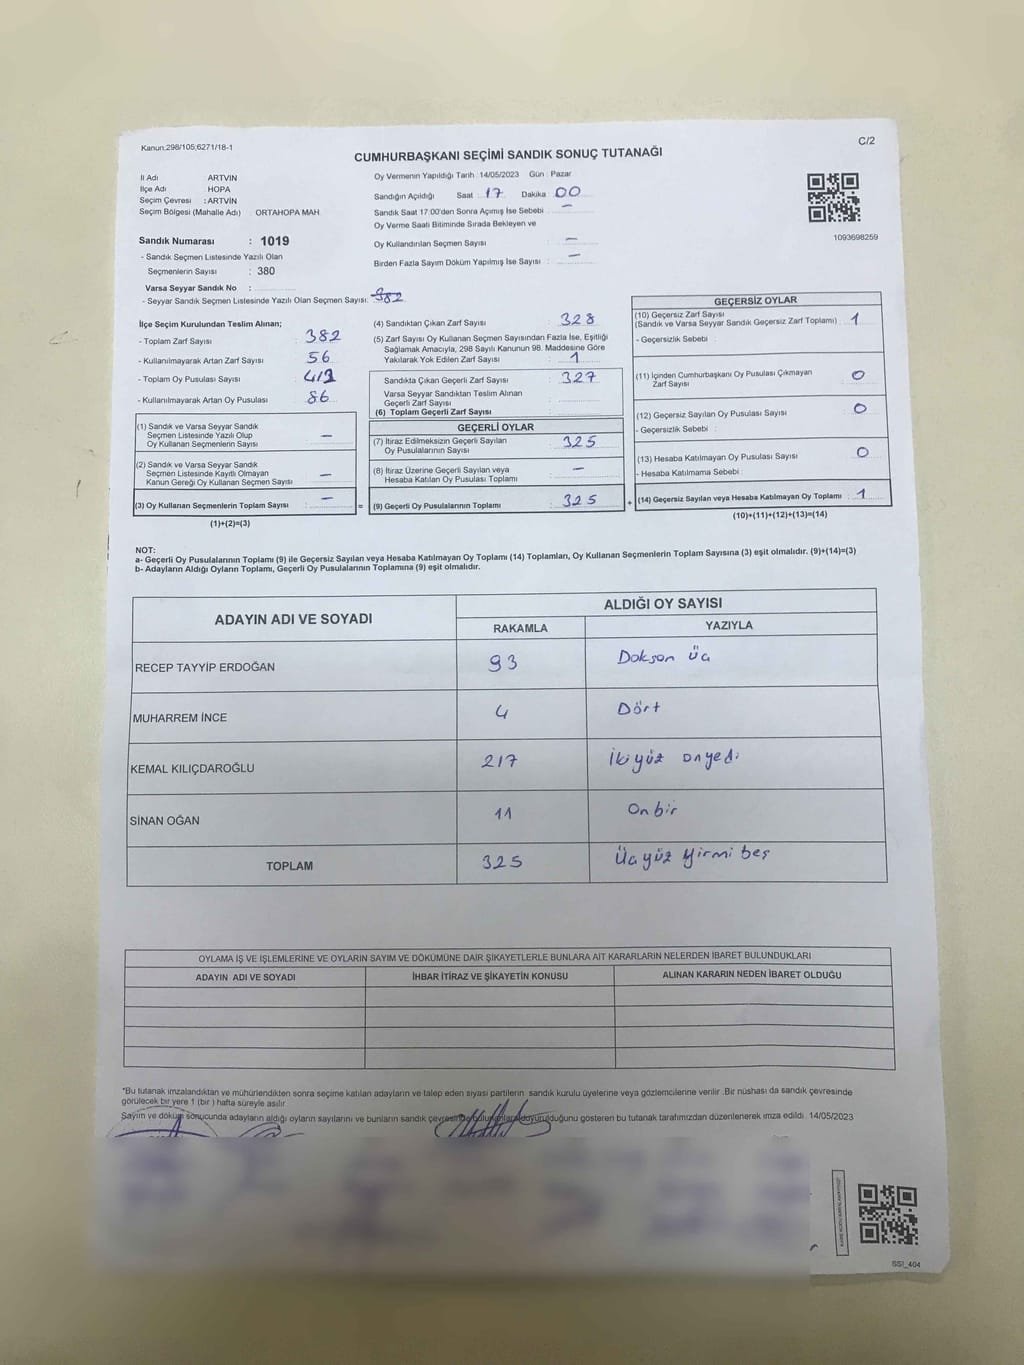 Kanun:298/105;6271/18-1
C/2
CUMHURBAŞKANI SEÇİMİ SANDIK SONUÇ TUTANAĞI
İl Adı ARTVİN
İlçe Adı HOPA
Seçim Çevresi : ARTVİN
Seçim Bölgesi (Mahalle Adı) ORTAHOPA MAH
Sandık Numarası : 1019
- Sandık Seçmen Listesinde Yazılı Olan
Seçmenlerin Sayısı : 380
Varsa Seyyar Sandık No :
- Seyyar Sandık Seçmen Listesinde Yazılı Olan Seçmen Sayısı: 382
Oy Vermenin Yapıldığı Tarih :14/05/2023 Gün : Pazar
Sandığın Açıldığı Saat : 17 Dakika : 00
Sandık Saat 17:00'den Sonra Açımış İse Sebebi : —
Oy Verme Saati Bitiminde Sırada Bekleyen ve
Oy Kullandırılan Seçmen Sayısı : —
Birden Fazla Sayım Döküm Yapılmış İse Sayısı : —
1093698259
İlçe Seçim Kurulundan Teslim Alınan;
- Toplam Zarf Sayısı : 382
- Kullanılmayarak Artan Zarf Sayısı : 56
- Toplam Oy Pusulası Sayısı :
- Kullanılmayarak Artan Oy Pusulası : 86
(1) Sandık ve Varsa Seyyar Sandık
Seçmen Listesinde Yazılı Olup
Oy Kullanan Seçmenlerin Sayısı —
(2) Sandık ve Varsa Seyyar Sandık
Seçmen Listesinde Kayıtlı Olmayan
Kanun Gereği Oy Kullanan Seçmen Sayısı —
(3) Oy Kullanan Seçmenlerin Toplam Sayısı : —
(1)+(2)=(3)
(4) Sandıktan Çıkan Zarf Sayısı : 328
(5) Zarf Sayısı Oy Kullanan Seçmen Sayısından Fazla İse, Eşitliği
Sağlamak Amacıyla, 298 Sayılı Kanunun 98. Maddesine Göre
Yakılarak Yok Edilen Zarf Sayısı : 1
Sandıkta Çıkan Geçerli Zarf Sayısı : 327
Varsa Seyyar Sandıktan Teslim Alınan
Geçerli Zarf Sayısı :
(6) Toplam Geçerli Zarf Sayısı :
GEÇERLİ OYLAR
(7) İtiraz Edilmeksizin Geçerli Sayılan
Oy Pusulalarının Sayısı : 325
(8) İtiraz Üzerine Geçerli Sayılan veya
Hesaba Katılan Oy Pusulası Toplamı : —
= (9) Geçerli Oy Pusulalarının Toplamı : 325
GEÇERSİZ OYLAR
(10) Geçersiz Zarf Sayısı
(Sandık ve Varsa Seyyar Sandık Geçersiz Zarf Toplamı) : 1
- Geçersizlik Sebebi :
(11) İçinden Cumhurbaşkanı Oy Pusulası Çıkmayan
Zarf Sayısı : 0
(12) Geçersiz Sayılan Oy Pusulası Sayısı : 0
- Geçersizlik Sebebi :
(13) Hesaba Katılmayan Oy Pusulası Sayısı : 0
- Hesaba Katılmama Sebebi :
+ (14) Geçersiz Sayılan veya Hesaba Katılmayan Oy Toplamı : 1
(10)+(11)+(12)+(13)=(14)
NOT:
a- Geçerli Oy Pusulalarının Toplamı (9) ile Geçersiz Sayılan veya Hesaba Katılmayan Oy Toplamı (14) Toplamları, Oy Kullanan Seçmenlerin Toplam Sayısına (3) eşit olmalıdır. (9)+(14)=(3)
b- Adayların Aldığı Oyların Toplamı, Geçerli Oy Pusulalarının Toplamına (9) eşit olmalıdır.
ADAYIN ADI VE SOYADI
ALDIĞI OY SAYISI
RAKAMLA YAZIYLA
RECEP TAYYİP ERDOĞAN 93 Dokson üç
MUHARREM İNCE 4 Dört
KEMAL KILIÇDAROĞLU 217 İkiyüz onyedi
SİNAN OĞAN 11 On bir
TOPLAM 325 Üçyüz yirmi beş
OYLAMA İŞ VE İŞLEMLERİNE VE OYLARIN SAYIM VE DÖKÜMÜNE DAİR ŞİKAYETLERLE BUNLARA AİT KARARLARIN NELERDEN İBARET BULUNDUKLARI
ADAYIN ADI VE SOYADI İHBAR İTİRAZ VE ŞİKAYETİN KONUSU ALINAN KARARIN NEDEN İBARET OLDUĞU
*Bu tutanak imzalandıktan ve mühürlendikten sonra seçime katılan adayların ve talep eden siyasi partilerin sandık kurulu üyelerine veya gözlemcilerine verilir .Bir nüshası da sandık çevresinde
görülecek bir yere 1 (bir ) hafta süreyle asılır
Sayım ve döküm sonucunda adayların aldığı oyların sayılarını ve bunların sandık gösteren bu tutanak tarafımızdan düzenlenerek imza edildi. 14/05/2023
SSI_404